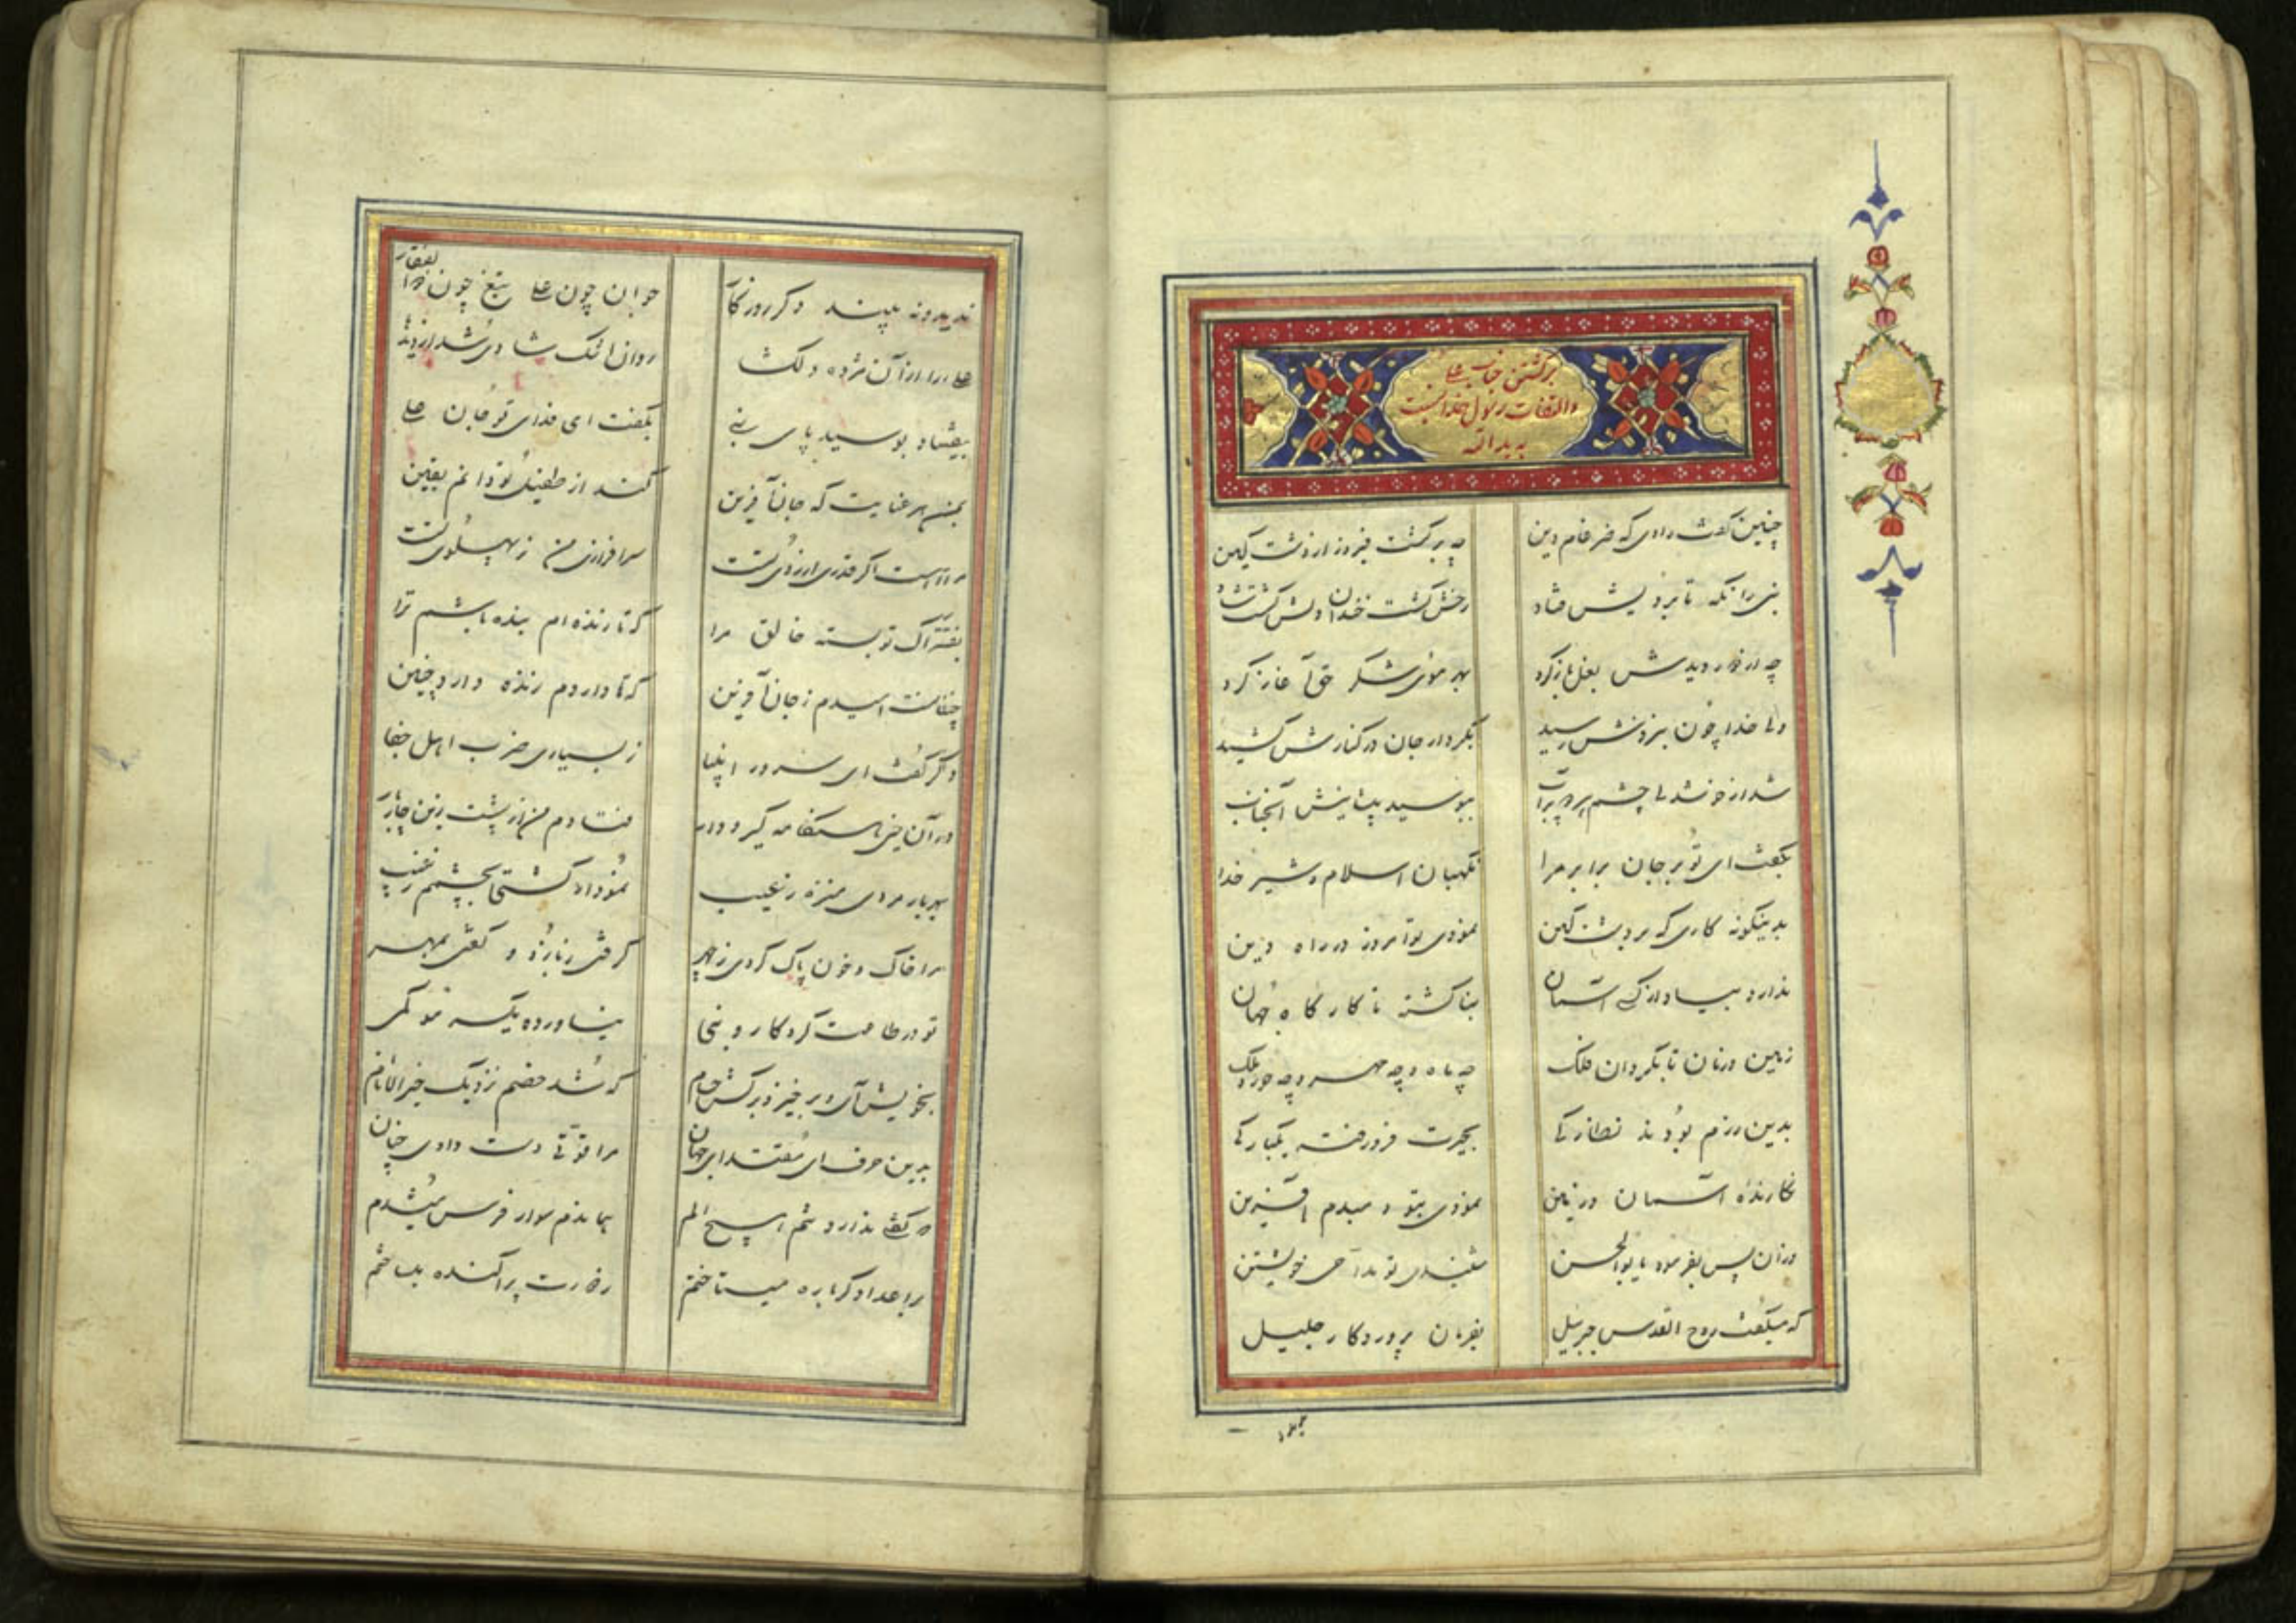 برگشتن جناب علی
والتفات رسول خدا نسبت
به ید الله
چنین گفت راوی که ضرغام دین چه برگشت فیروز از دشت کین
نبی را نگه تا برویش فتاد رخش گشت خندان دلش گشت شاد
چه از دور دیدش بغل باز کرد بهر موی شکر حق آغاز کرد
ولی خدا چون بنزدش رسید بکردار جان در کنارش کشید
شد از خوشدلی چشم پر آب ببوسید پیشانیش آنجناب
بگفت ای تو بر جان برابر مرا نگهبان اسلام و شیر خدا
بدینگونه کاری که در دشت کین نمودی تو امروز در راه دین
ندارد بیاد از کی آسمان بنا گشته تا کارگاه جهان
زمین و زمان تا بگردان فلک چه ماه و چه مهر و چه حور و ملک
بدین رزم بودند نظارگی بحیرت فرو رفته یکبارگی
نگارنده آسمان و زمین نمودی بتو دمبدم آفرین
وزان پس بفرمود یا بوالحسن شنیدی تو مداحی خویشتن
که میگفت روح القدس جبرئیل بفرمان پروردگار جلیل
ندیده نه بیند دگر روزگار جوان چون علی تیغ چون ذوالفقار
علی را از آن مژده دلگشا روان اشک شادی شد از دیدها
بیفتاد و بوسید پای نبی بگفت ای فدای تو جان علی
بمن هر عنایت که جان آفرین کند از طفیل تو دانم یقین
مرا هست اگر قدری از روی تست سرافرازی من ز پهلوی تست
بفتراک تو بسته خالق مرا که تا زنده ام بنده باشم ترا
چنانست امیدم ز جان آفرین که تا داردم زنده دارد چنین
دگر گفت ای سرور انبیا ز بسیاری ضرب اهل جفا
در آن حین هنگامه گیر و دار فتادم من از پشت زین چار بار
بهر بار مردی منزه ز عیب نمودار گشتی بچشمم ز غیب
مرا خاک و خون پاک کردی ز چهر گرفتی ز بازو و گفتی بمهر
تو در طاعت کردگار و نبی نیاورده یکسر مو کمی
بخویش آی و برخیز و برکش حسام که شد خصم نزدیک خیر الانام
بدین حرف ای مقتدای جهان مرا قوتی دست دادی چنان
که گفتی ندارد تنم هیچ الم بپا ندم سوار فرس میشدم
بر اعدا دگرباره میتاختم